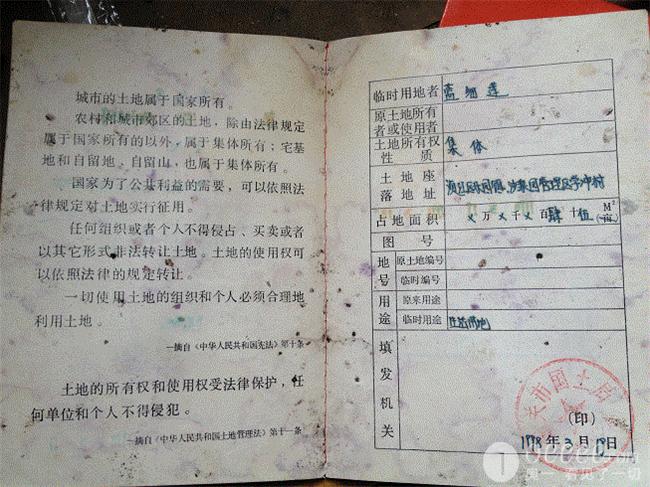 城市的土地属于国家所有。
农村和城市郊区的土地，除由法律规定
属于国家所有的以外，属于集体所有；宅基
地和自留地、自留山，也属于集体所有。
国家为了公共利益的需要，可以依照法
律规定对土地实行征用。
任何组织或者个人不得侵占、买卖或者
以其它形式非法转让土地。土地的使用权可
以依照法律的规定转让。
一切使用土地的组织和个人必须合理地
利用土地。
—摘自《中华人民共和国宪法》第十条
土地的所有权和使用权受法律保护，任
何单位和个人不得侵犯。
—摘自《中华人民共和国土地管理法》第十一条
临时用地者
原土地所有
者或使用者
土地所有权
性质 集体
土地座
落地址 管理区 村
占地面积 ×万×千×百肆十伍 M²
图号
地号 原土地编号
临时编号
用途 原来用途
临时用途
填发机关
市国土局
（印）
1998年3月 日